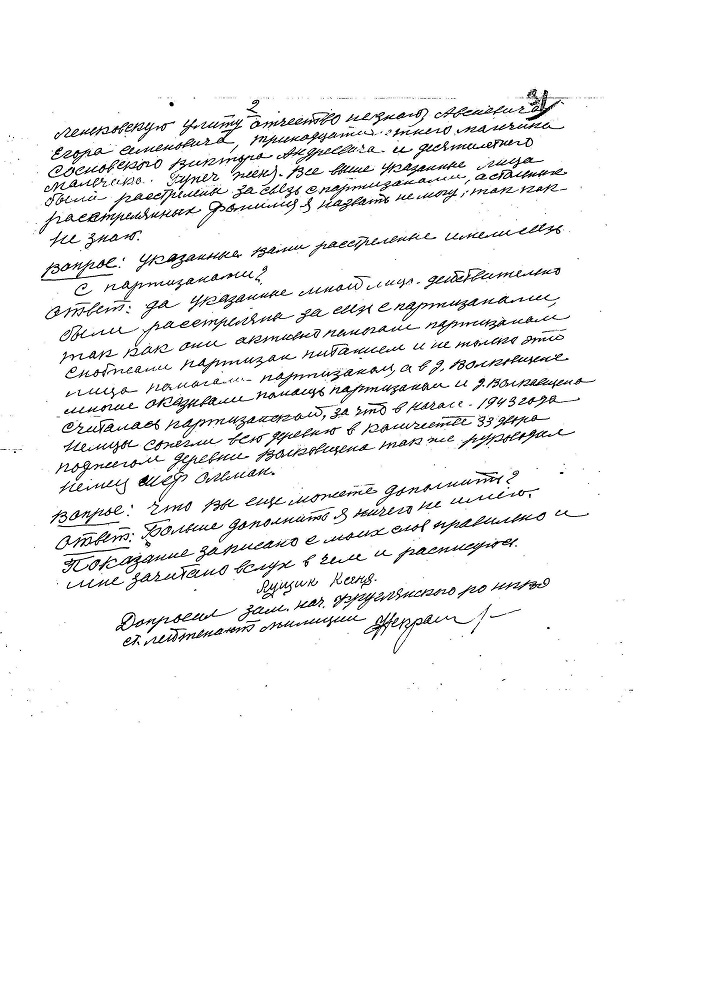 2
31
Ленсковскую Улиту отчество не знаю, Авсиевича
Егора Семеновича, тринадцати летнего мальчика
Сосновского Виктора Андреевича и десятилетнего
мальчика Женя. Все выше указанные лица
были расстреляны за связь с партизанами, а остальных
расстрелянных фамилия я назвать не могу, так как
не знаю.
Вопрос: указанные вами расстреленые имели связь
с партизанами?
Ответ: да указанные мной лица действительно
были расстреляны за связь с партизанами,
так как они активно помогали партизанам
снабжали партизан питанием и не только это
лица помогали партизанам, а в д. Волковщене
многие оказывали помощь партизанам и д. Волковщена
считалась партизанской, за что в начале 1943 года
немцы сожгли всю деревню в количестве 33 двора
поджегом деревни Волковщена так же руководил
немец шеф
Вопрос: что вы еще можете дополнить?
Ответ: Больше дополнить я ничего не имею.
Показание записано с моих слов правильно и
мне зачитано вслух в чем и расписуюсь.
Допросил зам. нач. ро НКВД
ст. лейтенант милиции